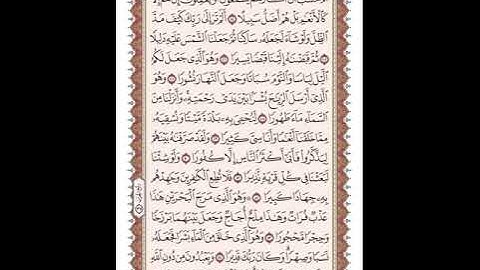 كَٱلْأَنْعَٰمِ بَلْ هُمْ أَضَلُّ سَبِيلًا ۝ أَلَمْ تَرَ إِلَىٰ رَبِّكَ كَيْفَ مَدَّ
ٱلظِّلَّ وَلَوْ شَآءَ لَجَعَلَهُۥ سَاكِنًا ثُمَّ جَعَلْنَا ٱلشَّمْسَ عَلَيْهِ دَلِيلًا
۝ ثُمَّ قَبَضْنَٰهُ إِلَيْنَا قَبْضًا يَسِيرًا ۝ وَهُوَ ٱلَّذِى جَعَلَ لَكُمُ
ٱلَّيْلَ لِبَاسًا وَٱلنَّوْمَ سُبَاتًا وَجَعَلَ ٱلنَّهَارَ نُشُورًا ۝ وَهُوَ
ٱلَّذِىٓ أَرْسَلَ ٱلرِّيَٰحَ بُشْرًۢا بَيْنَ يَدَىْ رَحْمَتِهِۦ وَأَنزَلْنَا مِنَ
ٱلسَّمَآءِ مَآءً طَهُورًا ۝ لِّنُحْـِۧىَ بِهِۦ بَلْدَةً مَّيْتًا وَنُسْقِيَهُۥ
مِمَّا خَلَقْنَآ أَنْعَٰمًا وَأَنَاسِىَّ كَثِيرًا ۝ وَلَقَدْ صَرَّفْنَٰهُ بَيْنَهُمْ
لِيَذَّكَّرُوا۟ فَأَبَىٰٓ أَكْثَرُ ٱلنَّاسِ إِلَّا كُفُورًا ۝ وَلَوْ شِئْنَا
لَبَعَثْنَا فِى كُلِّ قَرْيَةٍ نَّذِيرًا ۝ فَلَا تُطِعِ ٱلْكَٰفِرِينَ وَجَٰهِدْهُم
بِهِۦ جِهَادًا كَبِيرًا ۝ وَهُوَ ٱلَّذِى مَرَجَ ٱلْبَحْرَيْنِ هَٰذَا
عَذْبٌ فُرَاتٌ وَهَٰذَا مِلْحٌ أُجَاجٌ وَجَعَلَ بَيْنَهُمَا بَرْزَخًا
وَحِجْرًا مَّحْجُورًا ۝ وَهُوَ ٱلَّذِى خَلَقَ مِنَ ٱلْمَآءِ بَشَرًا فَجَعَلَهُۥ
نَسَبًا وَصِهْرًا وَكَانَ رَبُّكَ قَدِيرًا ۝ وَيَعْبُدُونَ مِن دُونِ ٱللَّهِ